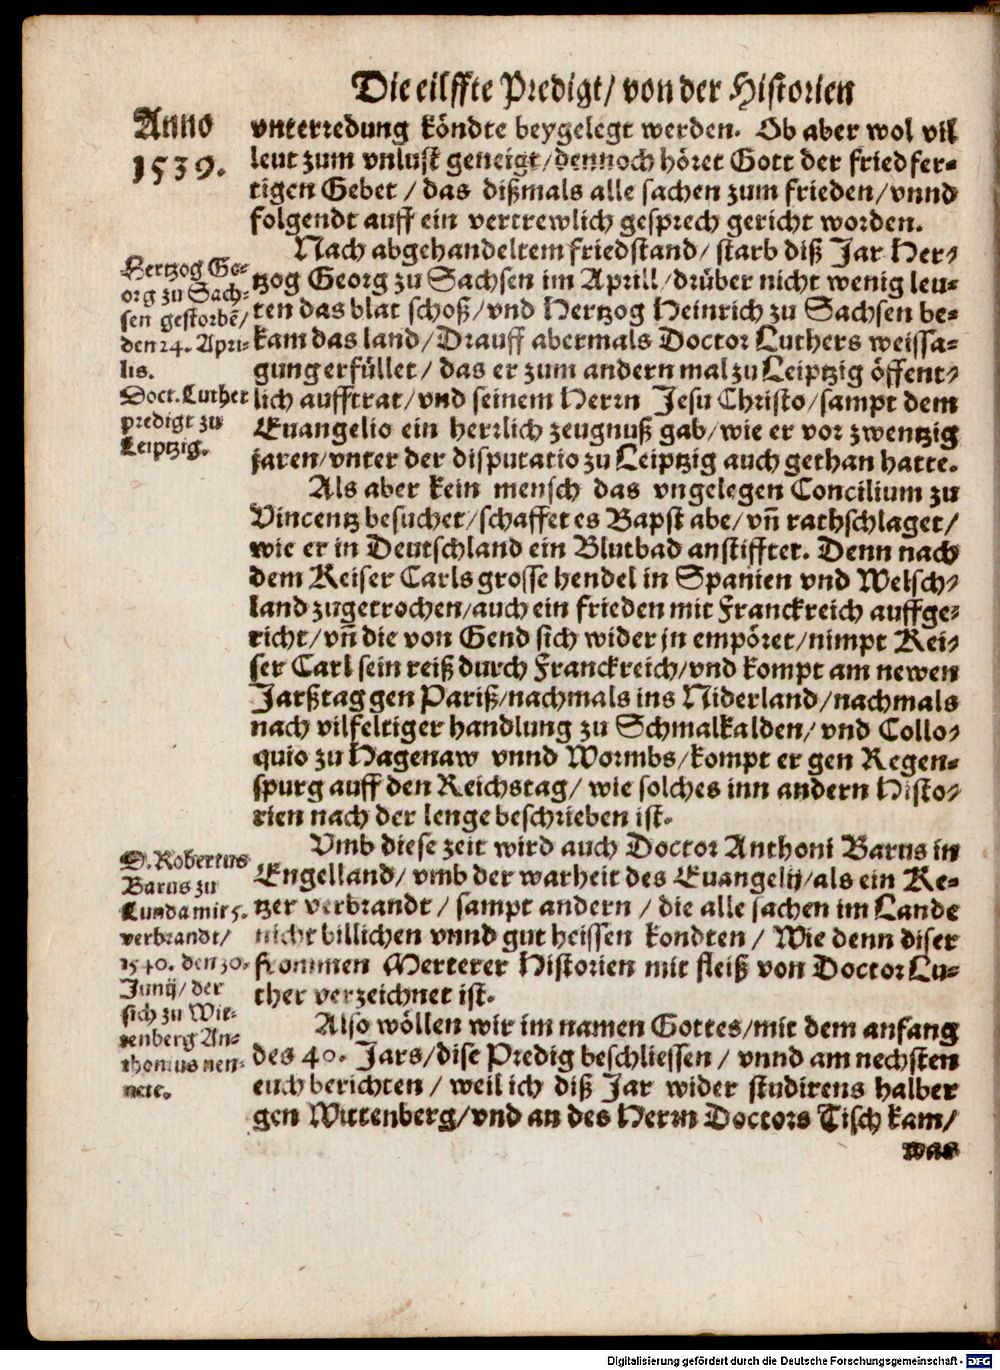 Die eilffte Predigt/ von der Historien
Anno
1539.
vnterredung köndte beygelegt werden. Ob aber wol vil
leut zum vnlust geneigt/dennoch höret Gott der friedfer-
tigen Gebet / das dißmals alle sachen zum frieden/vnnd
folgendt auff ein vertrewlich gesprech gericht worden.
Nach abgehandeltem friedstand/ starb diß Jar Her-
tzog Georg zu Sachsen im Aprill/drüber nicht wenig leu-
ten das blat schoß/vnd Hertzog Heinrich zu Sachsen be-
kam das land/Drauff abermals Doctor Luthers weissa-
gung erfüllet / das er zum andern mal zu Leiptzig öffent-
lich aufftrat/vnd seinem Herrn Jesu Christo/sampt dem
Euangelio ein herrlich zeugnuß gab/wie er vor zwentzig
jaren/vnter der disputatio zu Leiptzig auch gethan hatte.
Hertzog Ge-
org zu Sach-
sen gestorbē/
den 24. Apri-
lis.
Doct. Luther
predigt zu
Leiptzig.
Als aber kein mensch das vngelegen Concilium zu
Vincentz besuchet/schaffet es Bapst abe/vn̄ rathschlaget/
wie er in Deutschland ein Blutbad anstifftet. Denn nach
dem Keiser Carls grosse hendel in Spanien vnd Welsch-
land zugetrochen/auch ein frieden mit Franckreich auffge-
richt/vn̄ die von Gend sich wider jn empöret/nimpt Kei-
ser Carl sein reiß durch Franckreich/vnd kompt am newen
Jarßtag gen Pariß/nachmals ins Niderland/nachmals
nach vilfeltiger handlung zu Schmalkalden/ vnd Collo-
quio zu Hagenaw vnnd Wormbs/kompt er gen Regen-
spurg auff den Reichstag/ wie solches inn andern Histo-
rien nach der lenge beschrieben ist.
Vmb diese zeit wird auch Doctor Anthoni Barus in
Engelland/ vmb der warheit des Euangelij/als ein Ke-
tzer verbrandt / sampt andern / die alle sachen im Lande
nicht billichen vnnd gut heissen kondten / Wie denn diser
frommen Merterer Historien mit fleiß von Doctor Lu-
ther verzeichnet ist.
D. Robertus
Barus zu
Lunda mit 5.
verbrandt/
1540. den 30.
Junij/ der
sich zu Wit-
tenberg An-
thonius nen-
nete.
Also wöllen wir im namen Gottes/mit dem anfang
des 40. Jars/dise Predig beschliessen / vnnd am nechsten
euch berichten / weil ich diß Jar wider studirens halber
gen Wittenberg/vnd an des Herrn Doctors Tisch kam/
was
Digitalisierung gefördert durch die Deutsche Forschungsgemeinschaft - DFG